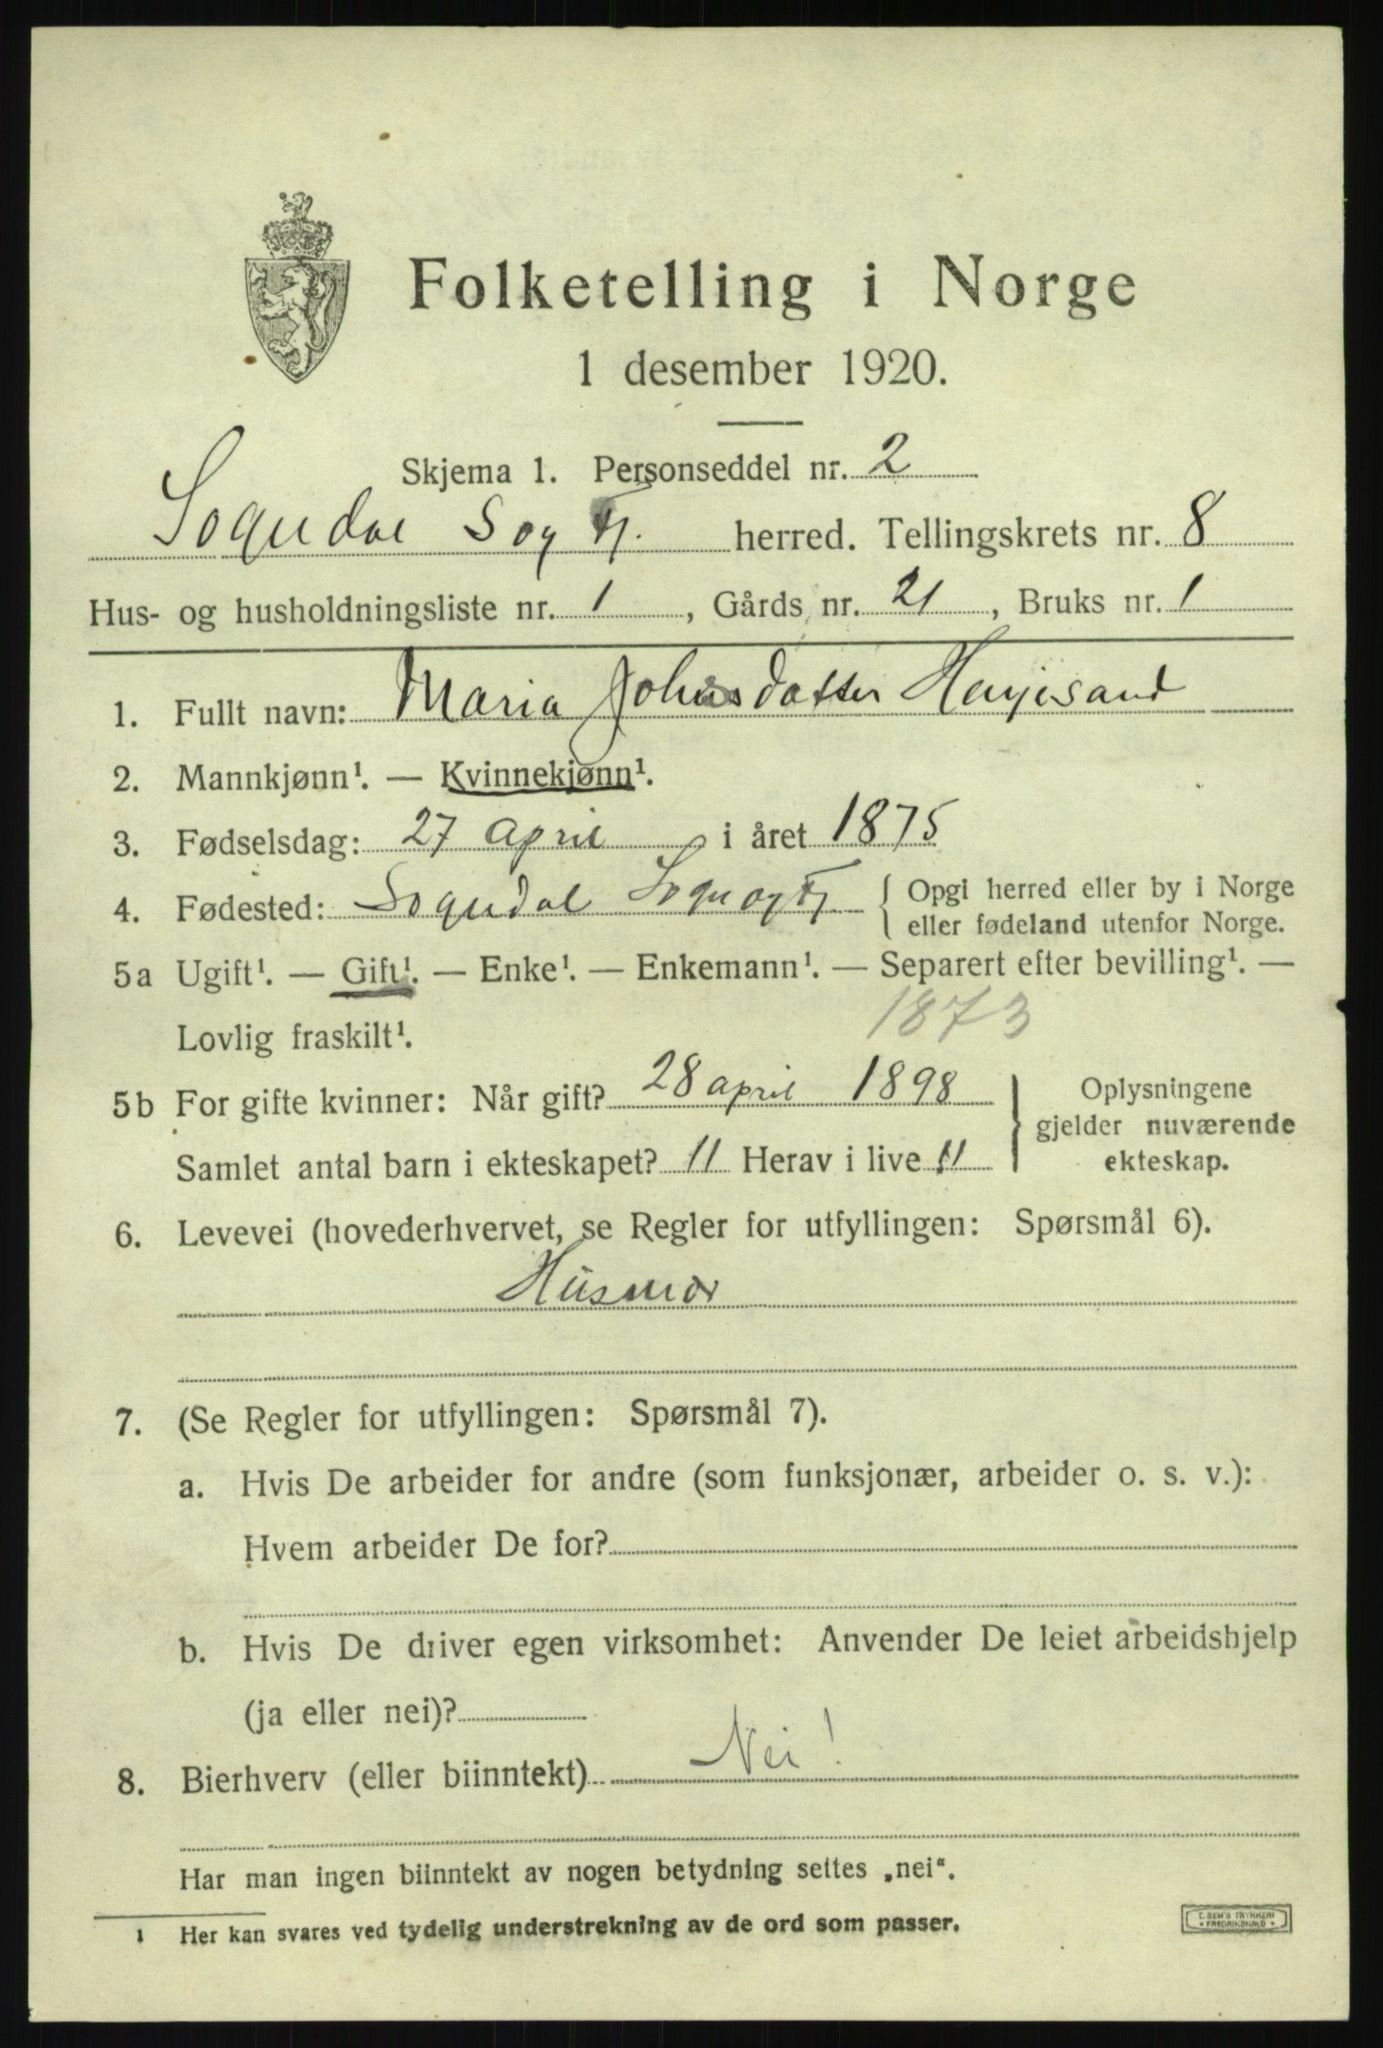 Folketelling i Norge
1 desember 1920.
Skjema 1. Personseddel nr. 2
Sogndal Sogn Fj. herred. Tellingskrets nr. 8
Hus- og husholdningsliste nr. 1, Gårds nr. 21, Bruks nr. 1
1. Fullt navn: Maria Johnsdatter
2. Mannkjønn¹. — Kvinnekjønn¹.
3. Fødselsdag: 27 april i året 1875
4. Fødested: Sogndal Sogn og Fj { Opgi herred eller by i Norge
eller fødeland utenfor Norge.
5a Ugift¹. — Gift¹. — Enke¹. — Enkemann¹. — Separert efter bevilling¹. —
Lovlig fraskilt¹. 1873
5b For gifte kvinner: Når gift? 28 april 1898
Samlet antal barn i ekteskapet? 11 Herav i live 11
} Oplysningene
gjelder nuværende
ekteskap.
6. Levevei (hovederhvervet, se Regler for utfyllingen: Spørsmål 6).
Husmor
7. (Se Regler for utfyllingen: Spørsmål 7).
a. Hvis De arbeider for andre (som funksjonær, arbeider o. s. v.):
Hvem arbeider De for?
b. Hvis De driver egen virksomhet: Anvender De leiet arbeidshjelp
(ja eller nei)?
8. Bierhverv (eller biinntekt) Nei!
Har man ingen biinntekt av nogen betydning settes „nei“.
1 Her kan svares ved tydelig understrekning av de ord som passer.
E. SEM'S TRYKKERI
FREDRIKSHALD